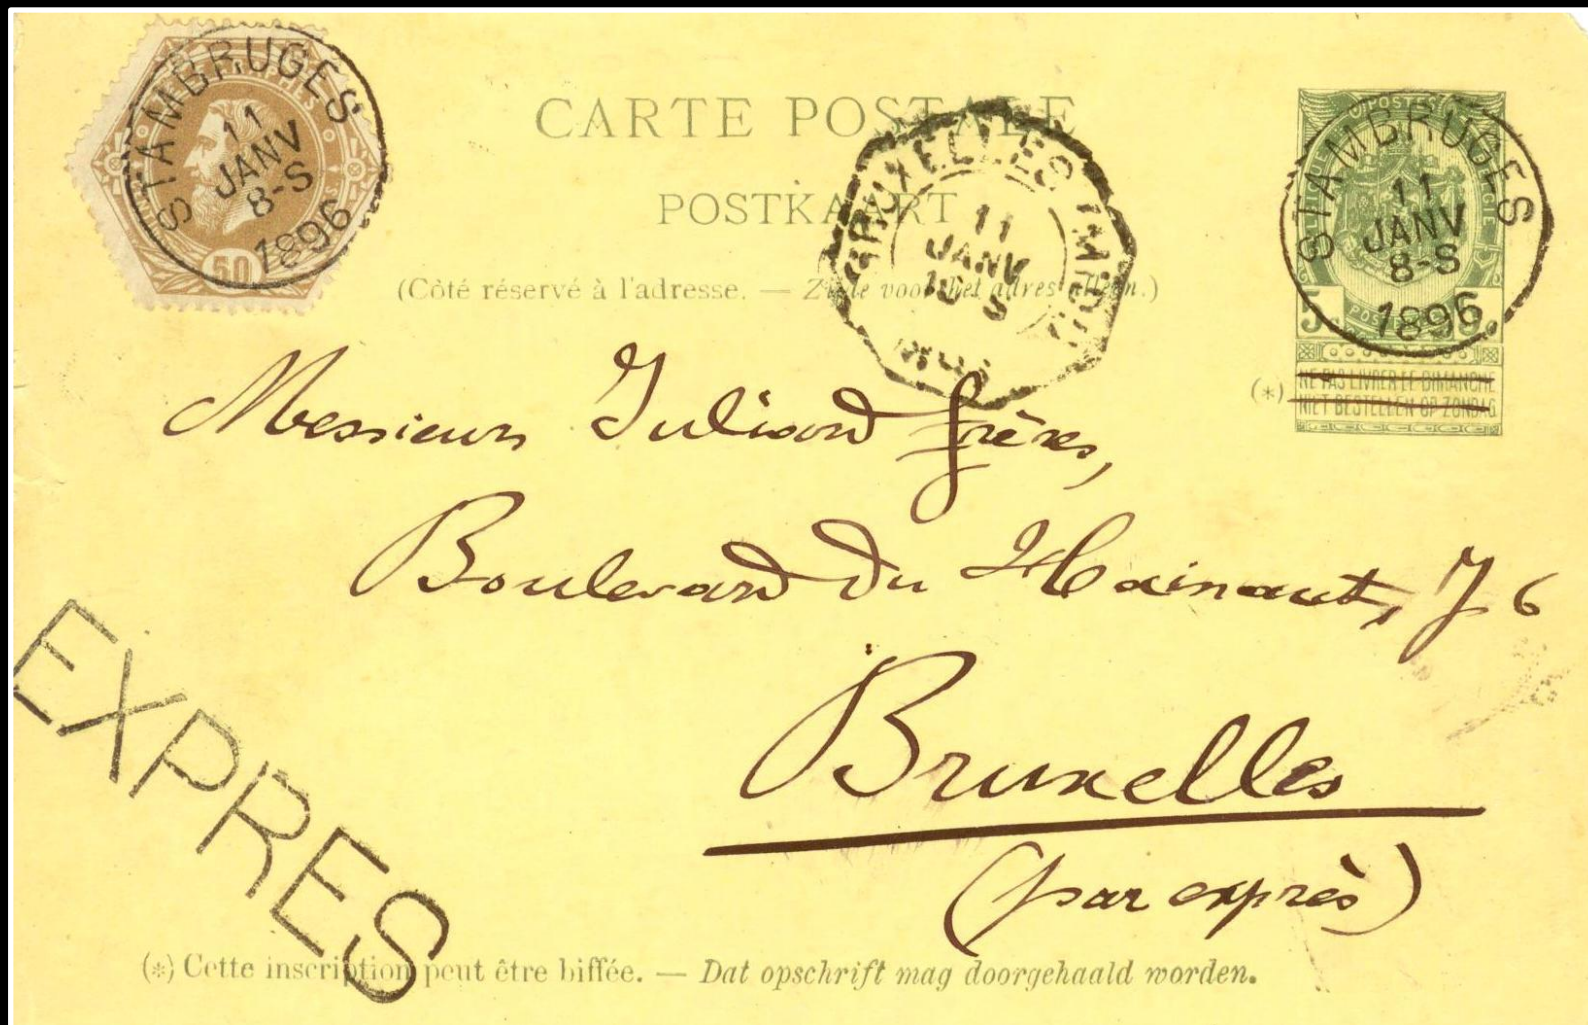 STAMBRUGES
11
JANV
8-S
1896
50
CARTE POSTALE
POSTKAART
(Côté réservé à l'adresse. — Zijde voor het adres alleen.)
BRUXELLES
11
JANV
10
S
POSTES
STAMBRUGES
11
JANV
8-S
1896
5
(*)
NE PAS LIVRER LE DIMANCHE
NIET BESTELLEN OP ZONDAG
Messieurs Julisard frères,
Boulevard du Hainaut, 76
Bruxelles
(par exprès)
EXPRES
(*) Cette inscription peut être biffée. — Dat opschrift mag doorgehaald worden.